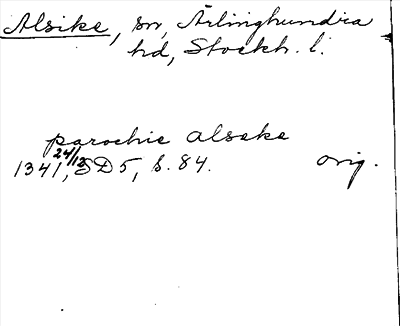 Alsike, sn, Ärlinghundra
hd, Stockh. l.
parochie alseke
1341, 24/12, SD 5, s. 84. orig.